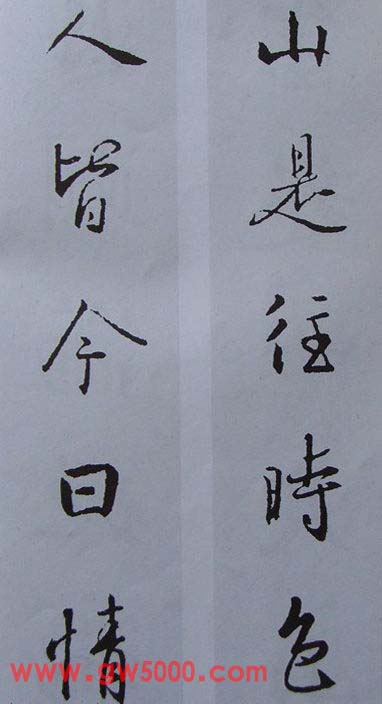 山是往時色
人皆今日情
www.gw5000.com